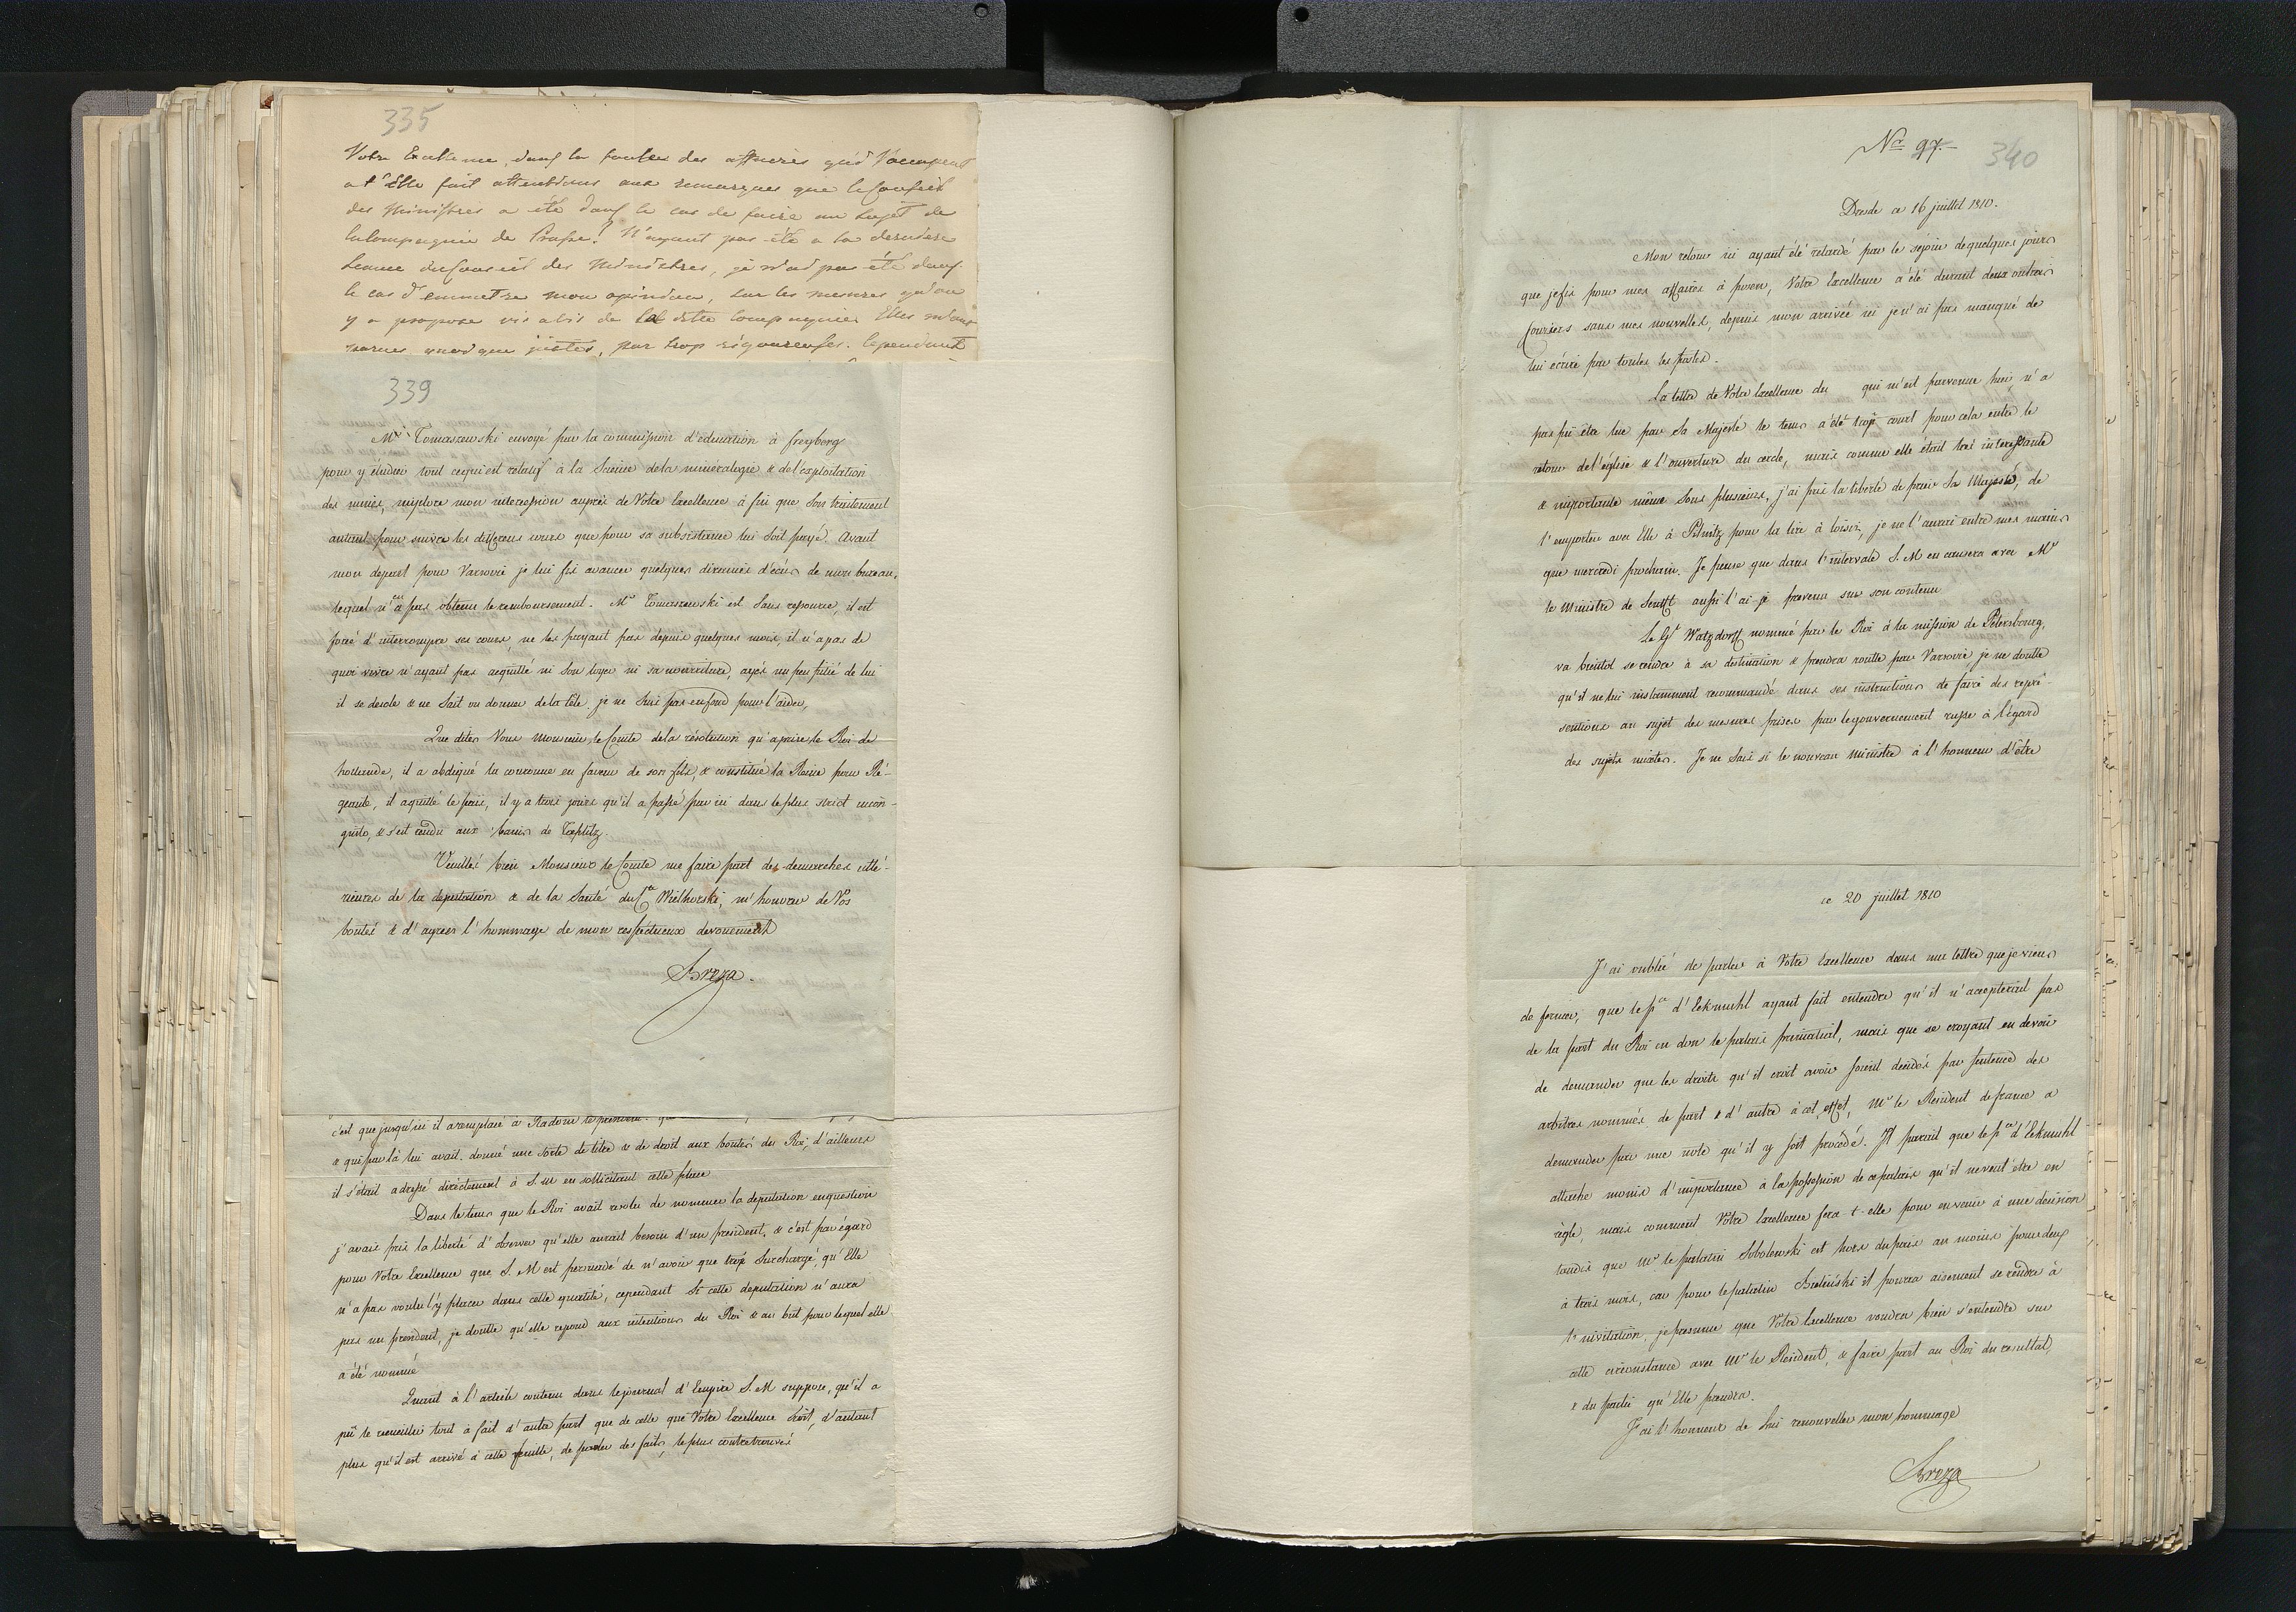 335
Votre Excellence, dans la foule des affaires qui l'occupent
a t'Elle fait attentions aux remarques que le Conseil
des Ministres a été dans le cas de faire au sujet de
la Compagnie de Prusse? N'ayant pas été a la derniere
Seance du Conseil des Ministres, je n'ai pas été dans
le cas d'emmettre mon opinion, sur les mesures qu'on
y a propose vis a vis de la ditte Compagnie. Elles
quoique justes, par trop rigoureuses. Cependant
339
Mr Tomaszewski envoyé par la commission d'education à freyberg
pour y étudier tout ce qui est relatif à la Science de la minéralogie & de l'exploitation
des mines, implore mon intercession auprès de Votre Excellence à fin que Son traitement
autant pour suivre les differens cours que pour sa subsistance lui Soit payé. Avant
mon depart pour Varsovie je lui fis avancer quelques dixaines d'écus de mon bureau,
lequel n'en a pas obtenu le remboursement. Mr Tomaszewski est Sans ressource, il est
forcé d'interrompre ses cours, ne les payant pas depuis quelques mois, il n'a pas de
quoi vivre n'ayant pas acquitté ni Son loyer ni sa nourriture, ayés un peu pitié de lui
il se desole & ne Sait ou donner de la tête. je ne Suis pas en fond pour l'aider,
Que dites Vous Monsieur le Comte de la résolution qu'a prise le Roi de
hollande, il a abdiqué la couronne en faveur de son fils, & constitué la Reine pour Ré-
gente, il a quitté le païs, il y a trois jours qu'il a passé par ici dans le plus strict incon-
gnito, & s'est rendu aux bains de Toeplitz.
Veuilléz bien Monsieur le Comte me faire part des demarches ulté-
rieures de la deputation & de la Santé du Cte Wielhorski, m'honorer de Vos
bontés & d'agréer l'hommage de mon respectueux devouement
Breza.
c'est que jusqu'ici il a remplacé à Radom le
& qui par là lui avait donné une sorte de titre & de droit aux bontés du Roi, d'ailleurs
il s'était adressé directement à S. M en sollicitant cette place
Dans le tems que le Roi avait resolu de nommer la deputation en question
j'avais pris la liberté d'observer qu'elle aurait besoin d'un president, & c'est par égard
pour Votre Excellence que S. M est persuadé de n'avoir que trop Surchargé, qu'Elle
n'a pas voulu l'y placer dans cette qualité, cependant Si cette deputation n'aura
pas un president, je doutte qu'elle repond aux intentions du Roi & au but pour lequel elle
a été nommé
Quant à l'article contenu dans le journal d'Empire S. M suppose, qu'il a
pû le recueillir tout à fait d'autre part que de celle que Votre Excellence croit, d'autant
plus qu'il est arrivé à cette feuille, de parler des faits, le plus contretrouvés
No 97.
340
Dresde ce 16 juillet 1810.
Mon retour ici ayant été retardé par le séjour de quelques jours
que je fis pour mes affaires à posen, Votre Excellence a été durant deux ordinaires
Couriers sans mes nouvelles, depuis mon arrivée ici je n'ai pas manqué de
lui écrire par toutes les postes.
La lettre de Votre Excellence du qui m'est parvenue hier n'a
pas pû être lue par Sa Majesté le tems a été trop court pour cela entre le
retour de l'église & l'ouverture du cercle, mais comme elle était très interessante
& importante même Sous plusieurs, j'ai pris la liberté de prier Sa Majesté, de
l'emporter avec Elle à Pilnitz pour la lire à loisir, je ne l'aurai entre mes mains
que mercredi prochain. Je pense que dans l'intervale S. M en causera avec Mr
le Ministre de Senfft aussi l'ai je prevenu sur son contenu
Le Gl Watzdorff nommé par le Roi à la mission de Petersbourg,
va bientot se rendre à sa destination & prendra routte par Varsovie, je ne doutte
qu'il ne lui instamment recommandé dans ses instructions de faire des repré-
sentions au sujet des mesures prises par le gouvernement russe à l'égard
des sujets mixtes. Je ne Sais si le nouveau Ministre à l'honneur d'être
ce 20 juillet 1810
J'ai oublié de parler à Votre Excellence dans une lettre que je viens
de fermer, que le pce d'Eckmuhl ayant fait entendre qu'il n'accepterait pas
de la part du Roi en don le palais primatial, mais que se croyant en devoir
de demander que les droits qu'il croit avoir soient decidés par sentence des
arbitres nommés de part & d'autre à cet effet, Mr le Resident de france a
demander par une note qu'il y soit procédé. Il parait que le pce d'Eckmuhl
attache moins d'importance à la possession de ce palais qu'il ne veut être en
règle, mais comment Votre Excellence fera-t-elle pour en venir à une decision
tandis que Mr le palatin Sobolewski est hors du païs au moins pour deux
à trois mois, car pour le palatin Bielinski il pourra aisement se rendre à
l'invitation, je presume que Votre Excellence voudra bien s'entendre sur
cette circonstance avec Mr le Resident, & faire part au Roi du resultat,
& du partie qu'Elle prendra.
J'ai l'honneur de lui renouveller mon hommage
Breza